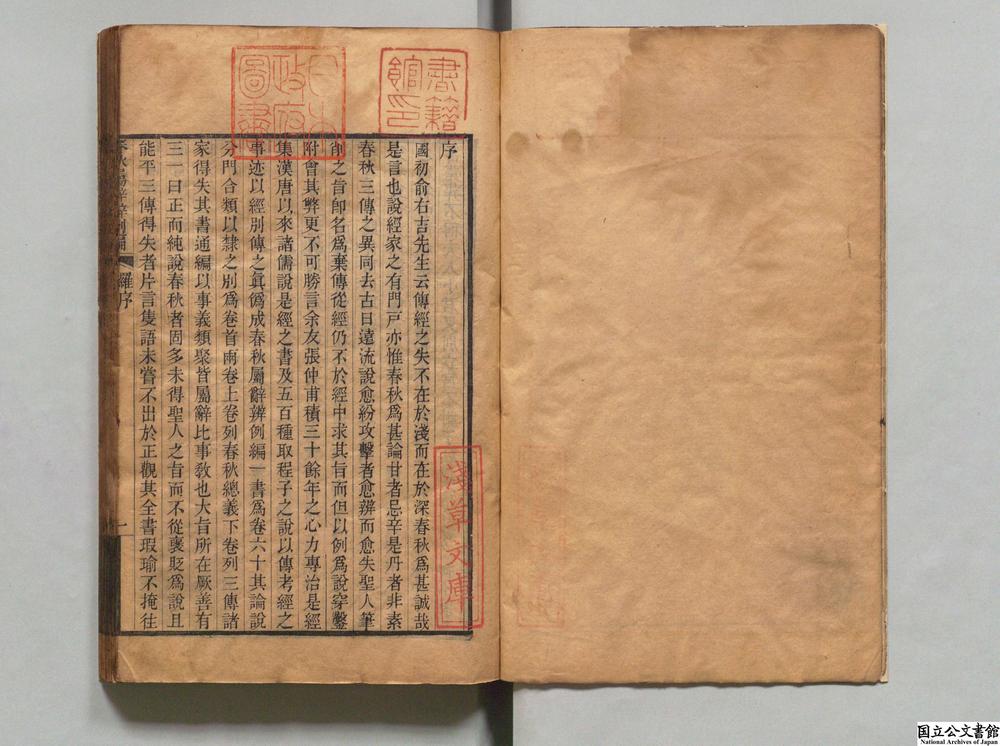 序
國初俞右吉先生云傳經之失不在於淺而在於深春秋爲甚誠哉
是言也說經家之有門戸亦惟春秋爲甚論甘者忌辛是丹者非素
春秋三傳之異同去古日遠流說愈紛攻擊者愈辨而愈失聖人筆
削之旨卽名爲棄傳從經仍不於經中求其旨而但以例爲說穿鑿
附會其弊更不可勝言余友張仲甫積三十餘年之心力專治是經
集漢唐以來諸儒說是經之書及五百種取程子之說以傳考經之
事迹以經別傳之眞僞成春秋屬辭辨例編一書爲卷六十其論說
分門合類以隸之別爲卷首兩卷上卷列春秋總義下卷列三傳諸
家得失其書通編以事義類聚皆屬辭比事教也大旨所在厥善有
三一曰正而純說春秋者固多未得聖人之旨而不從襃貶爲說且
能平三傳得失者片言隻語未嘗不出於正觀其全書瑕瑜不掩往
春秋屬辭辨例編
羅序
一
書籍館印
日本政府圖書
淺草文庫
国立公文書館
National Archives of Japan